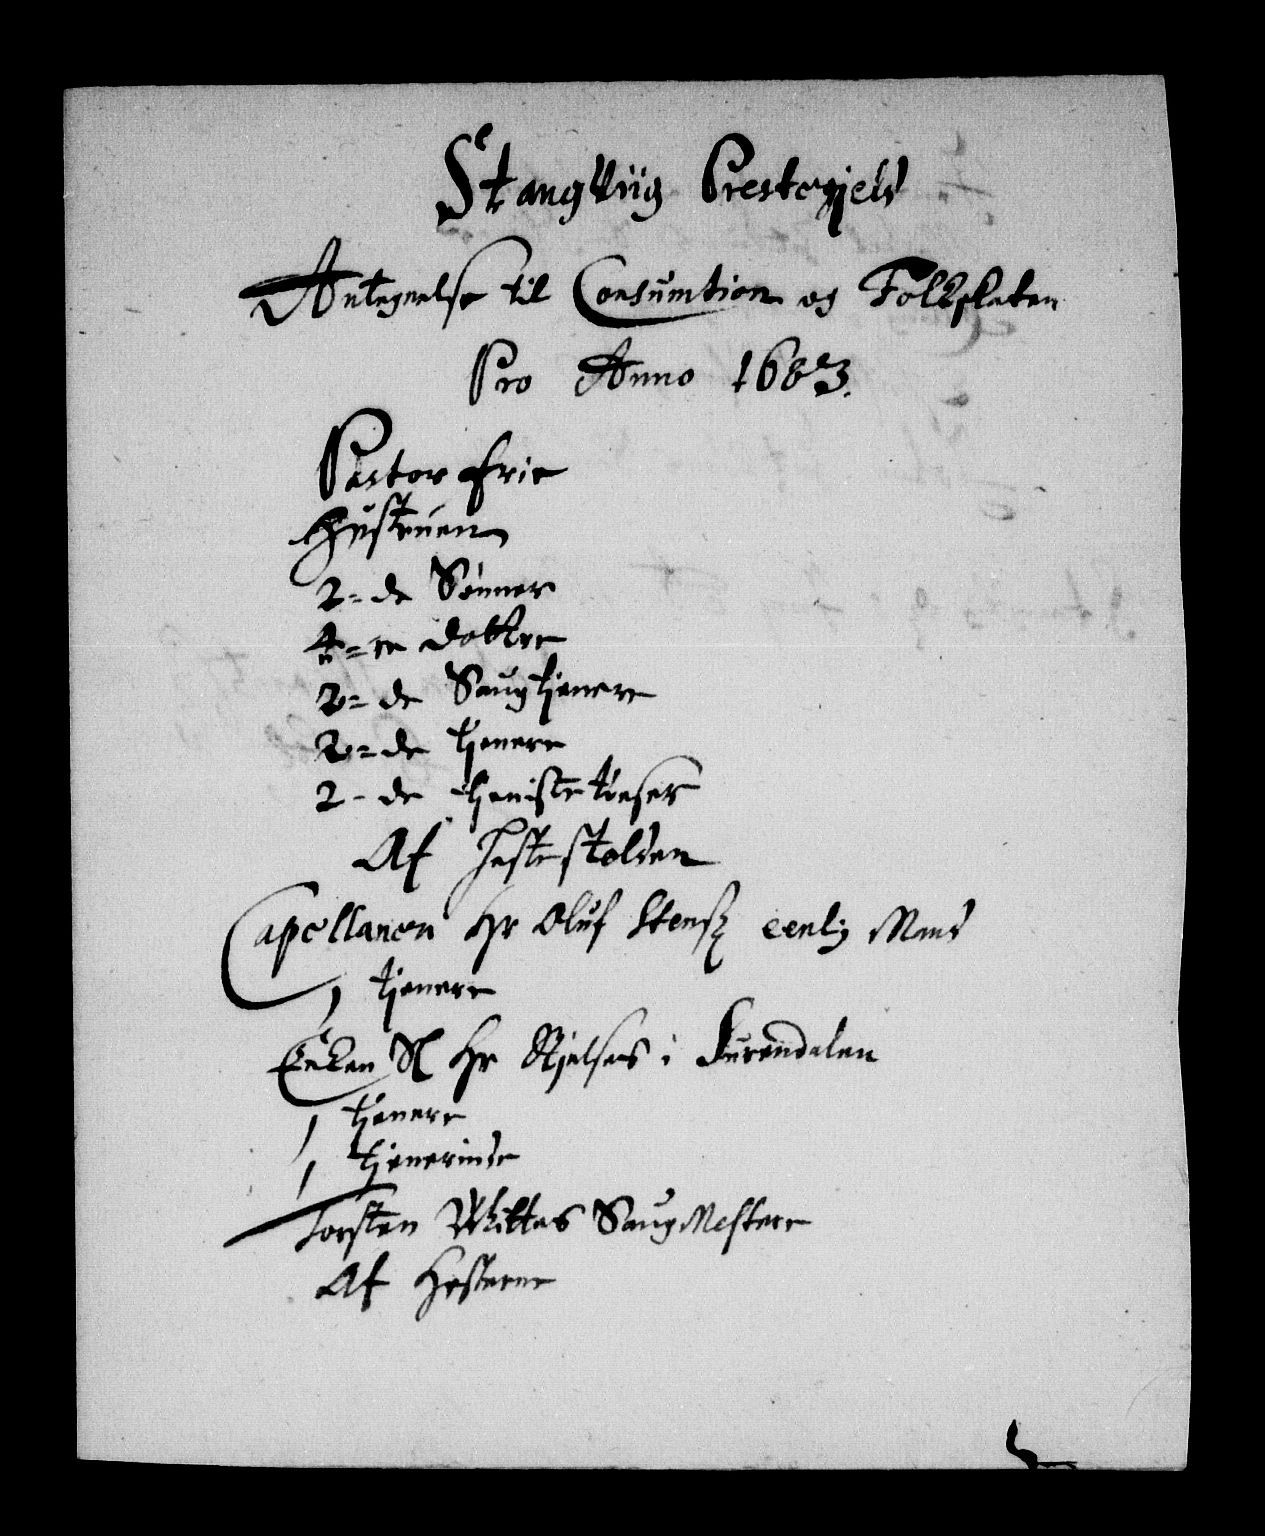 Stangviig Prestegield
Antegnelse til Consumtion og Folkskaten
Pro Anno 1683.
Pastor frie
Hustruen
2=de Sønner
4=re dottre
2=de Saugtjenere
2=de tjenere
2-de tjeniste tøeser
Af Hestestolden
Capellanen Hr Oluf eenlig Mand
1 tjenere
Enken Sl Hr Nielses i Surendalen
1 tjenere
1 tjenerinde
Torsten Wittes SaugMestere
Af Hesterne